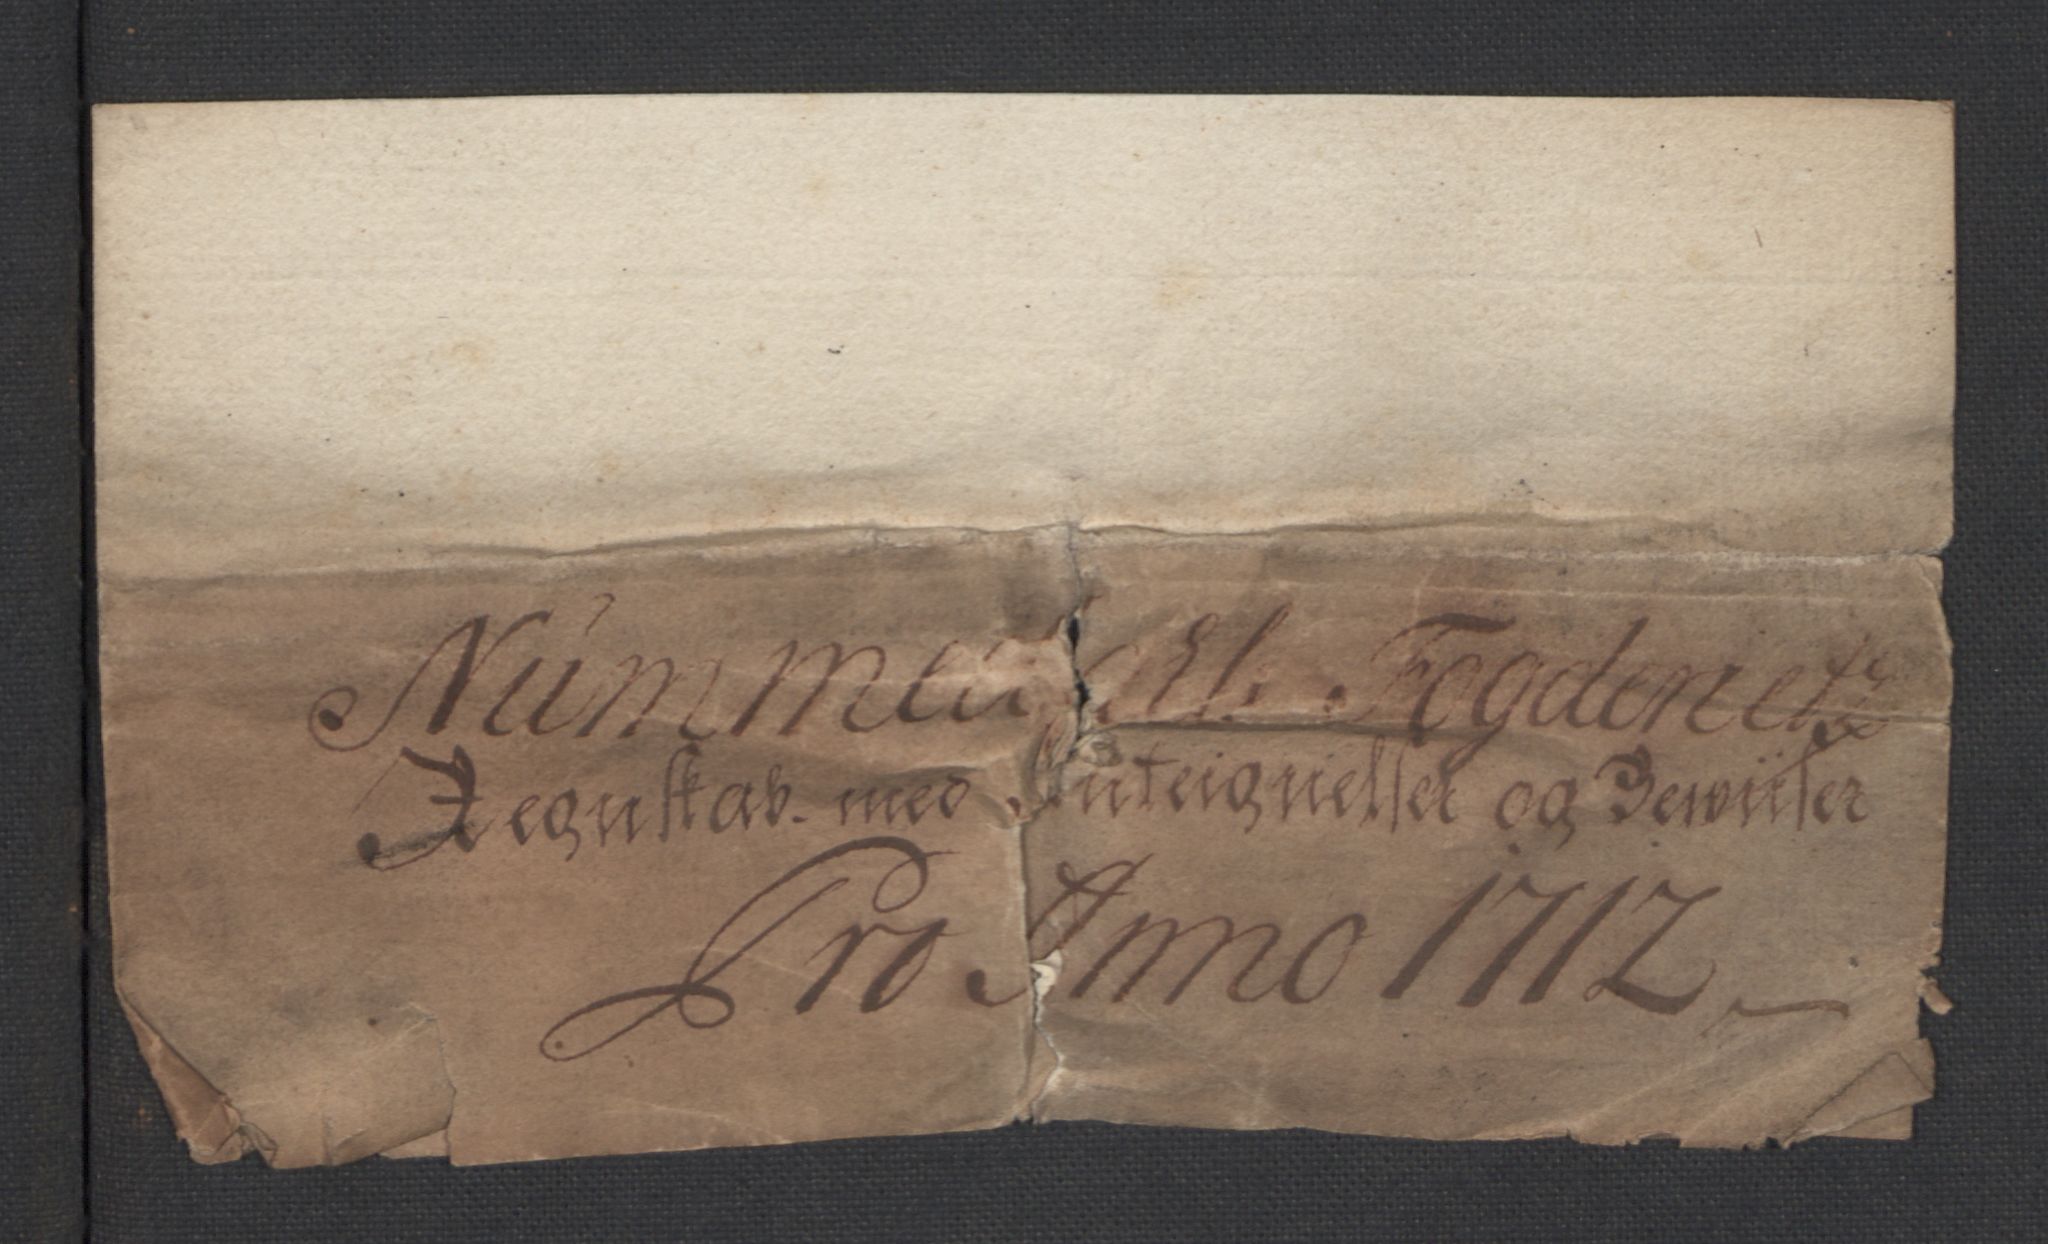 Nummedahls Fogderiets
Regnskab med Anteignelser og Bewiiser
Pro Anno 1712